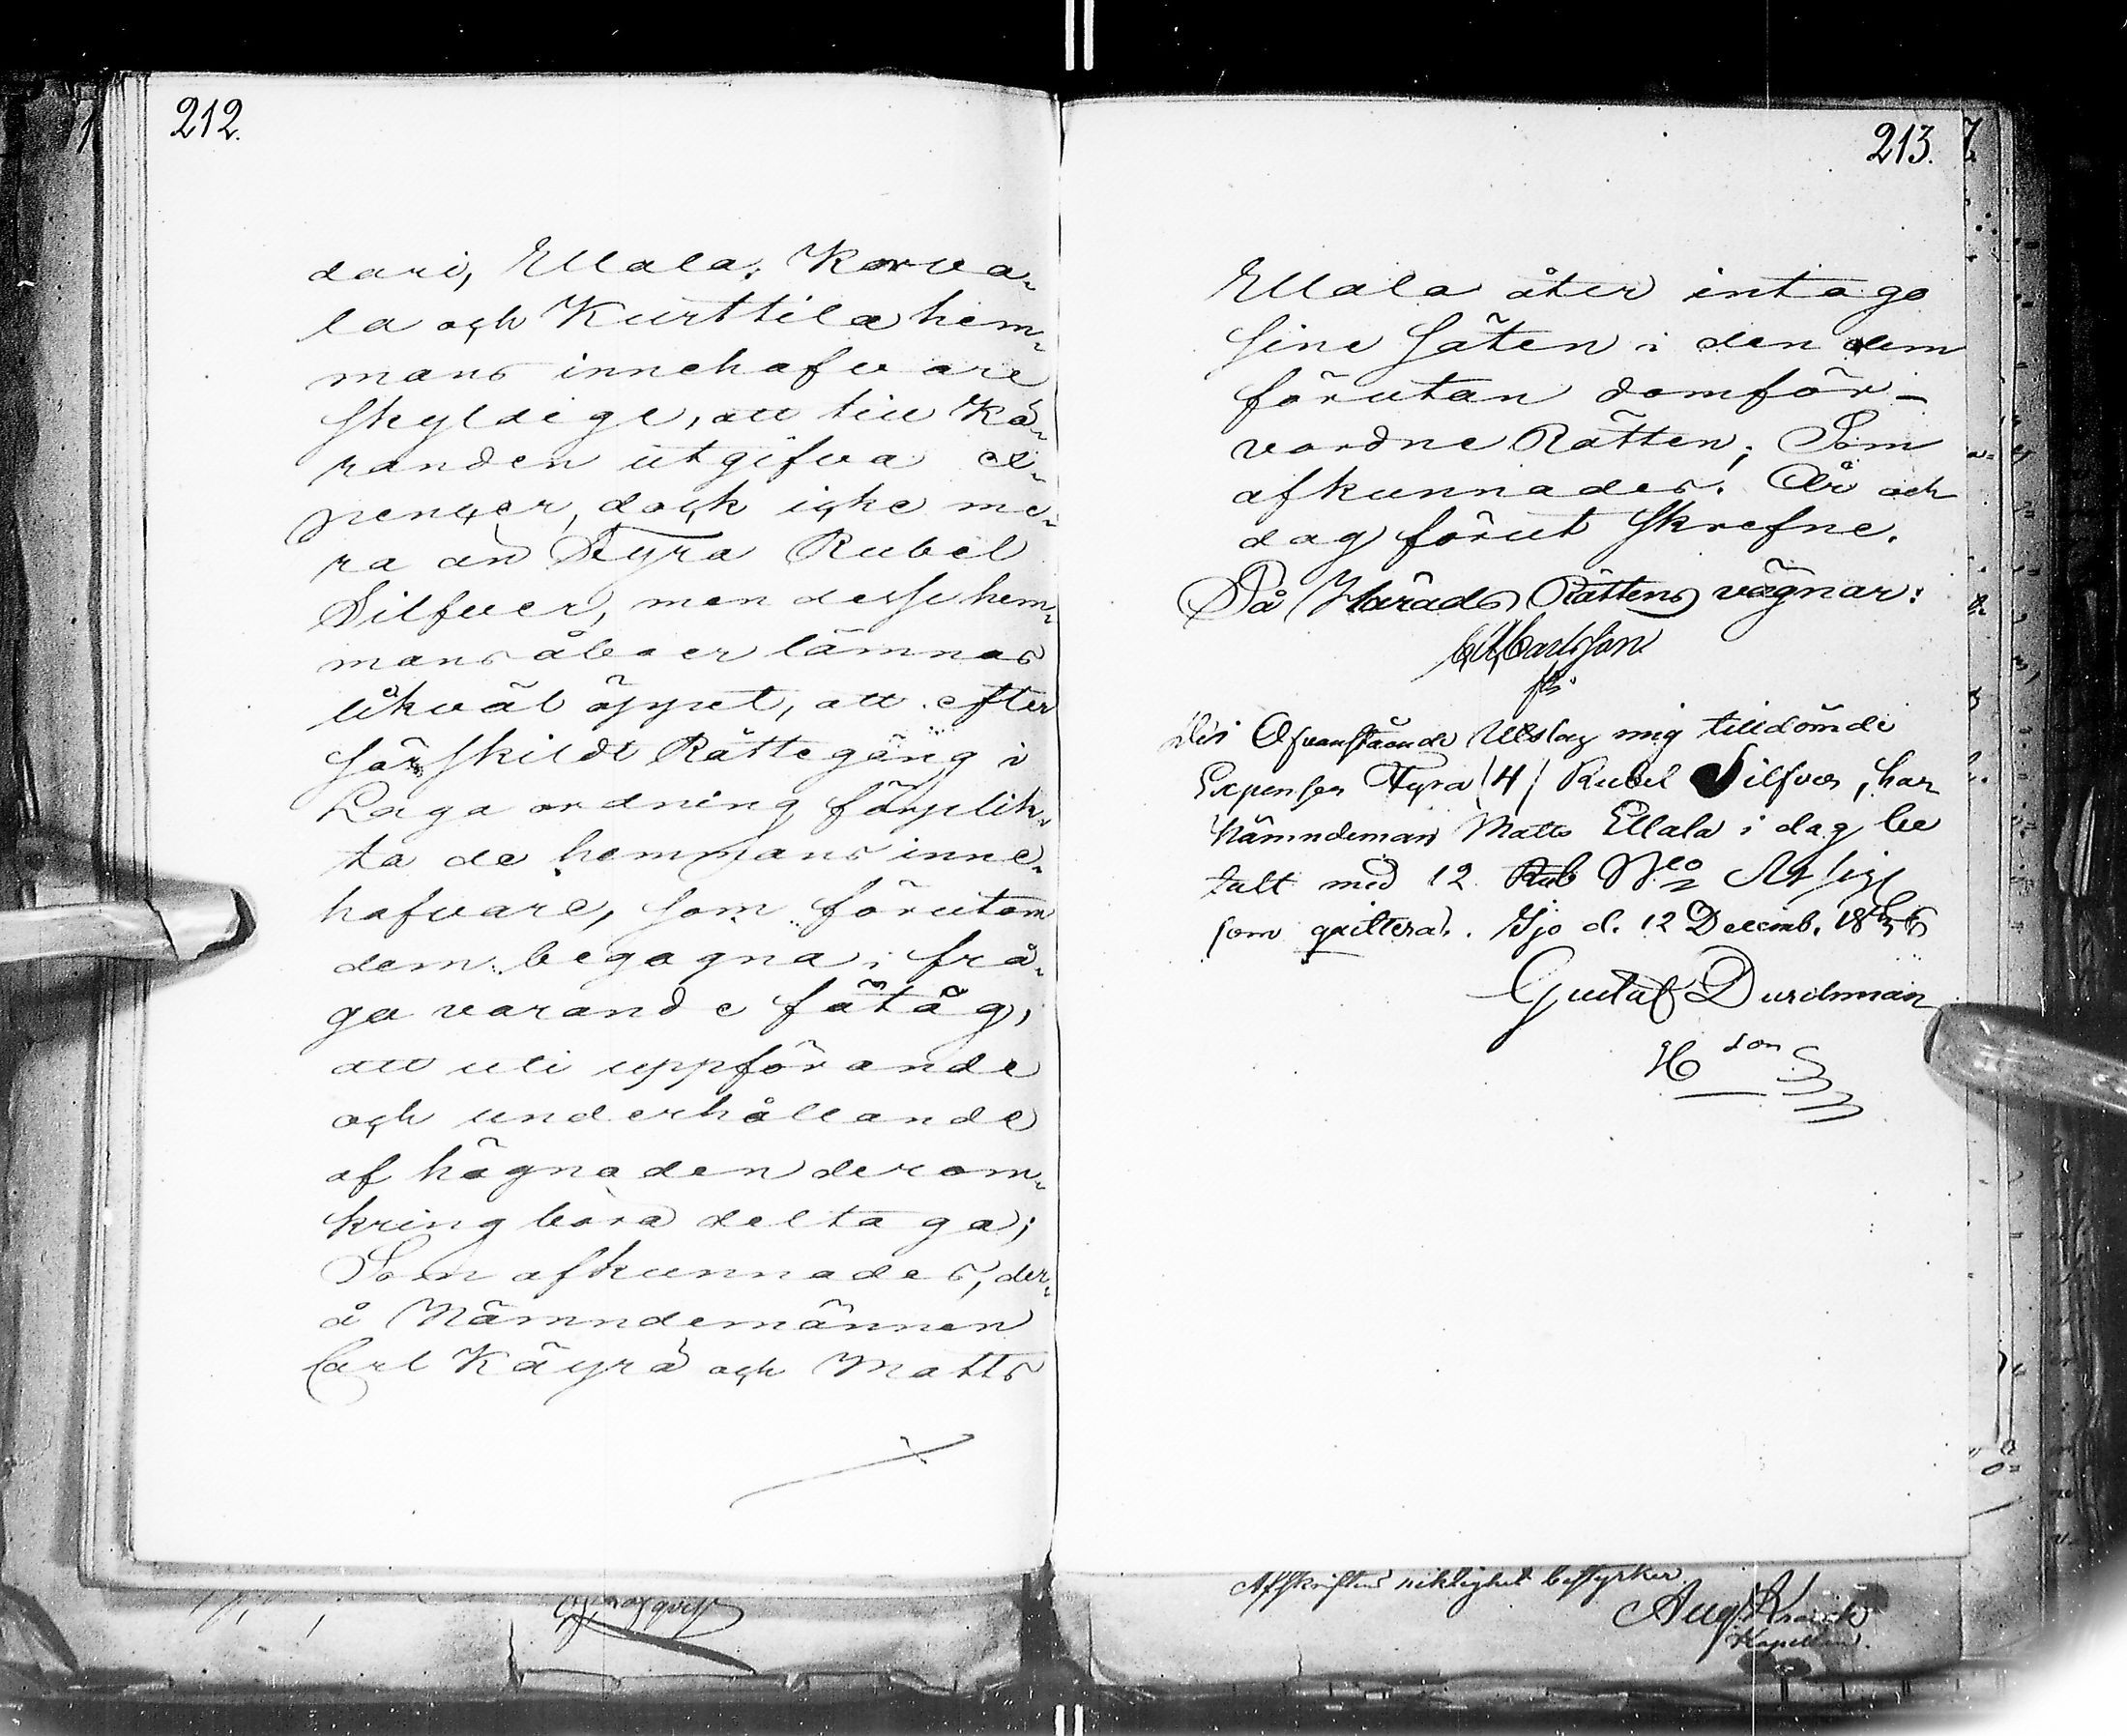 212.
dari, Ellala, Korva-
la och Kurttila hem-
mans innehafvare
skyldige, att till Kä-
randen utgifva ex-
penser, dock icke me-
ra än Fyra Rubel
Silfver, men desse hem-
mans åboer lämnas
likväl öppet, att efter
särskildt Rättegång i
Laga ordning förplik-
ta de hemmans inne-
hafvare, som förutom
dem begagna i frå-
ga varande fätåg,
att uti uppförande
och underhållande
af hägnaden derom-
kring böra deltaga;
Som afkunnades, der-
å Nämndemännen
Carl Käyrä och Matts
213.
Ellala åter intago
sine säten i den dem
förutan domför-
vordne Rätten; Som
afkunnades. År och
dag förut skrefne.
På Härads Rättens vägnar:
Carlsson
Ofvanstående Utslag mig tilldömde
Expenser Fyra /4/ Rubel Silfver, har
Nämndeman Matts Ellala i dag be
talt med 12
som quitteras. Ijo d. 12 Decemb. 18
Gustaf Durchman
H son
Afskriftens riktighet bestyrker
Aug. Krank
Kapellan.